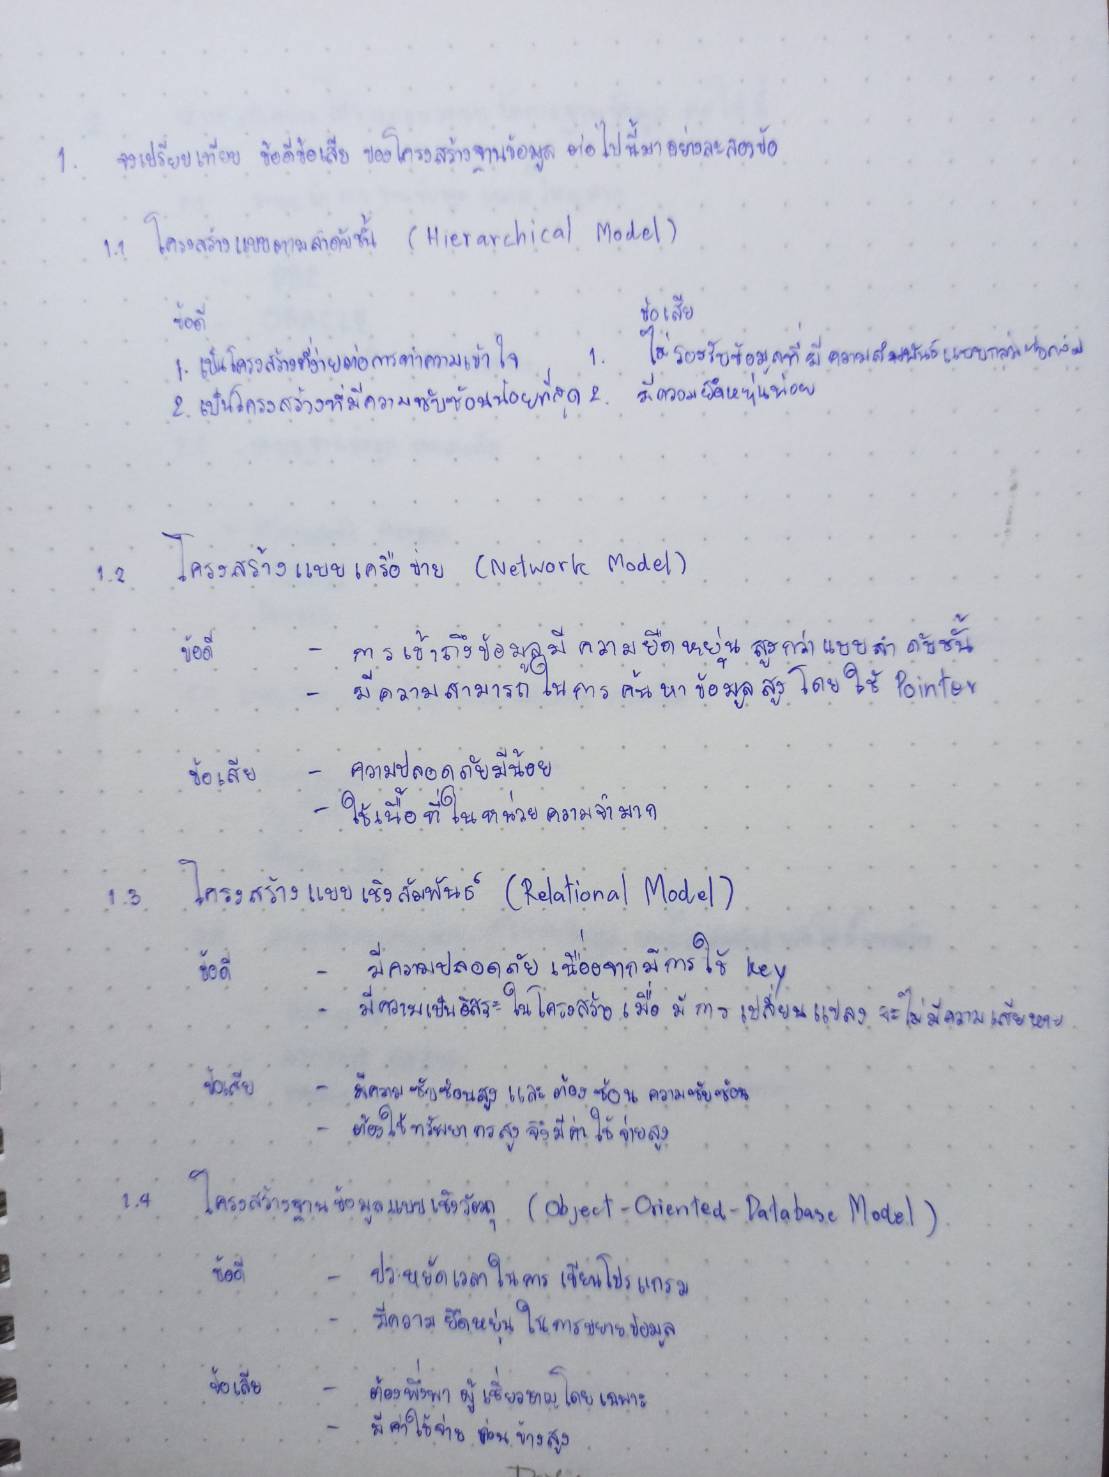 1. จงเปรียบเทียบ ข้อดีข้อเสีย ของโครงสร้างฐานข้อมูล ต่อไปนี้มาอย่างละสองข้อ
1.1 โครงสร้างแบบตามลำดับชั้น (Hierarchical Model)
ข้อดี ข้อเสีย
1. เป็นโครงสร้างที่ง่ายต่อการทำความเข้าใจ 1. ไม่รองรับข้อมูลที่มีความสัมพันธ์แบบ
2. เป็นโครงสร้างที่มีความซับซ้อนน้อยที่สุด 2. มีความยืดหยุ่นน้อย
1.2 โครงสร้างแบบเครือข่าย (Network Model)
ข้อดี - การเข้าถึงข้อมูลมีความยืดหยุ่น สูงกว่าแบบลำดับชั้น
- มีความสามารถในการค้นหาข้อมูลสูง โดยใช้ Pointer
ข้อเสีย - ความปลอดภัยมีน้อย
- ใช้เนื้อที่ในหน่วยความจำมาก
1.3 โครงสร้างแบบเชิงสัมพันธ์ (Relational Model)
ข้อดี - มีความปลอดภัย เนื่องจากมีการใช้ key
- มีความเป็นอิสระในโครงสร้าง เมื่อมีการเปลี่ยนแปลง จะไม่มีความเสียหาย
ข้อเสีย - มีความซับซ้อนสูง และต้องซ่อน ความซับซ้อน
- ต้องใช้ทรัพยากรสูง จึงมีค่าใช้จ่ายสูง
1.4 โครงสร้างฐานข้อมูลแบบเชิงวัตถุ (Object-Oriented-Database Model)
ข้อดี - ประหยัดเวลาในการเขียนโปรแกรม
- มีความยืดหยุ่นในการขยายข้อมูล
ข้อเสีย - ต้องพึ่งพา ผู้เชี่ยวชาญโดยเฉพาะ
- มีค่าใช้จ่าย ค่อนข้างสูง